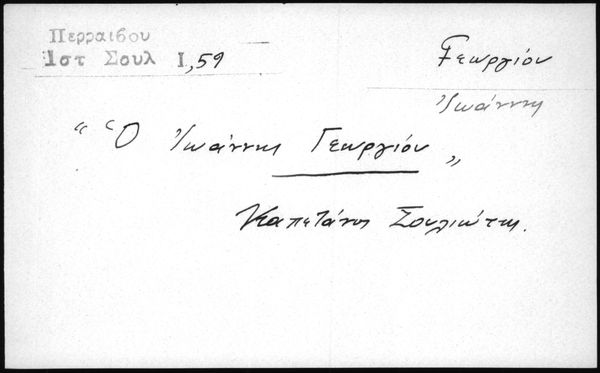 Περραιβου
Ιστ Σουλ Ι,59
Γεωργίου
Ἰωάννης
"Ὁ Ἰωάννης Γεωργίου"
Καπετάνος Σουλιώτης.